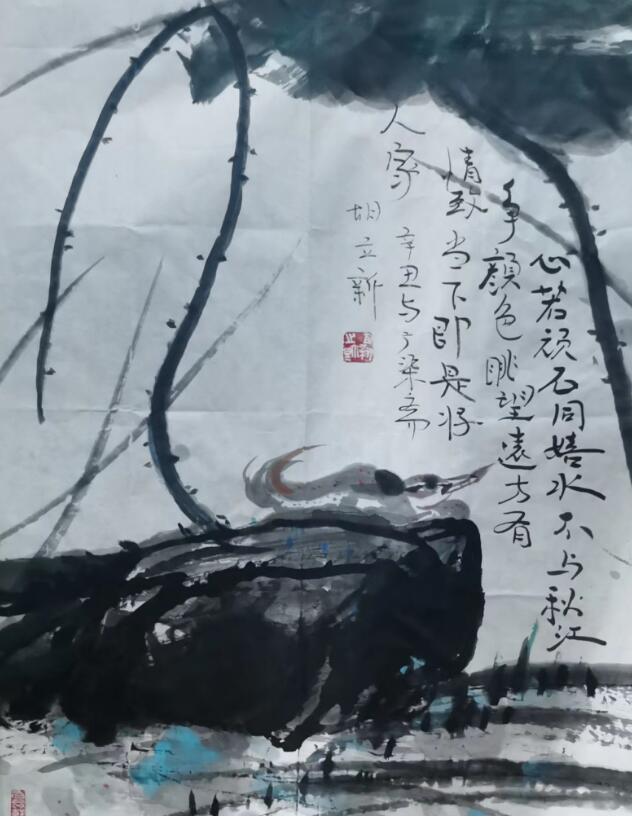 心若顽石同嬉水不与秋江
争颜色眺望远方有
情致当下即是好
人家 辛丑与广染斋
胡立新